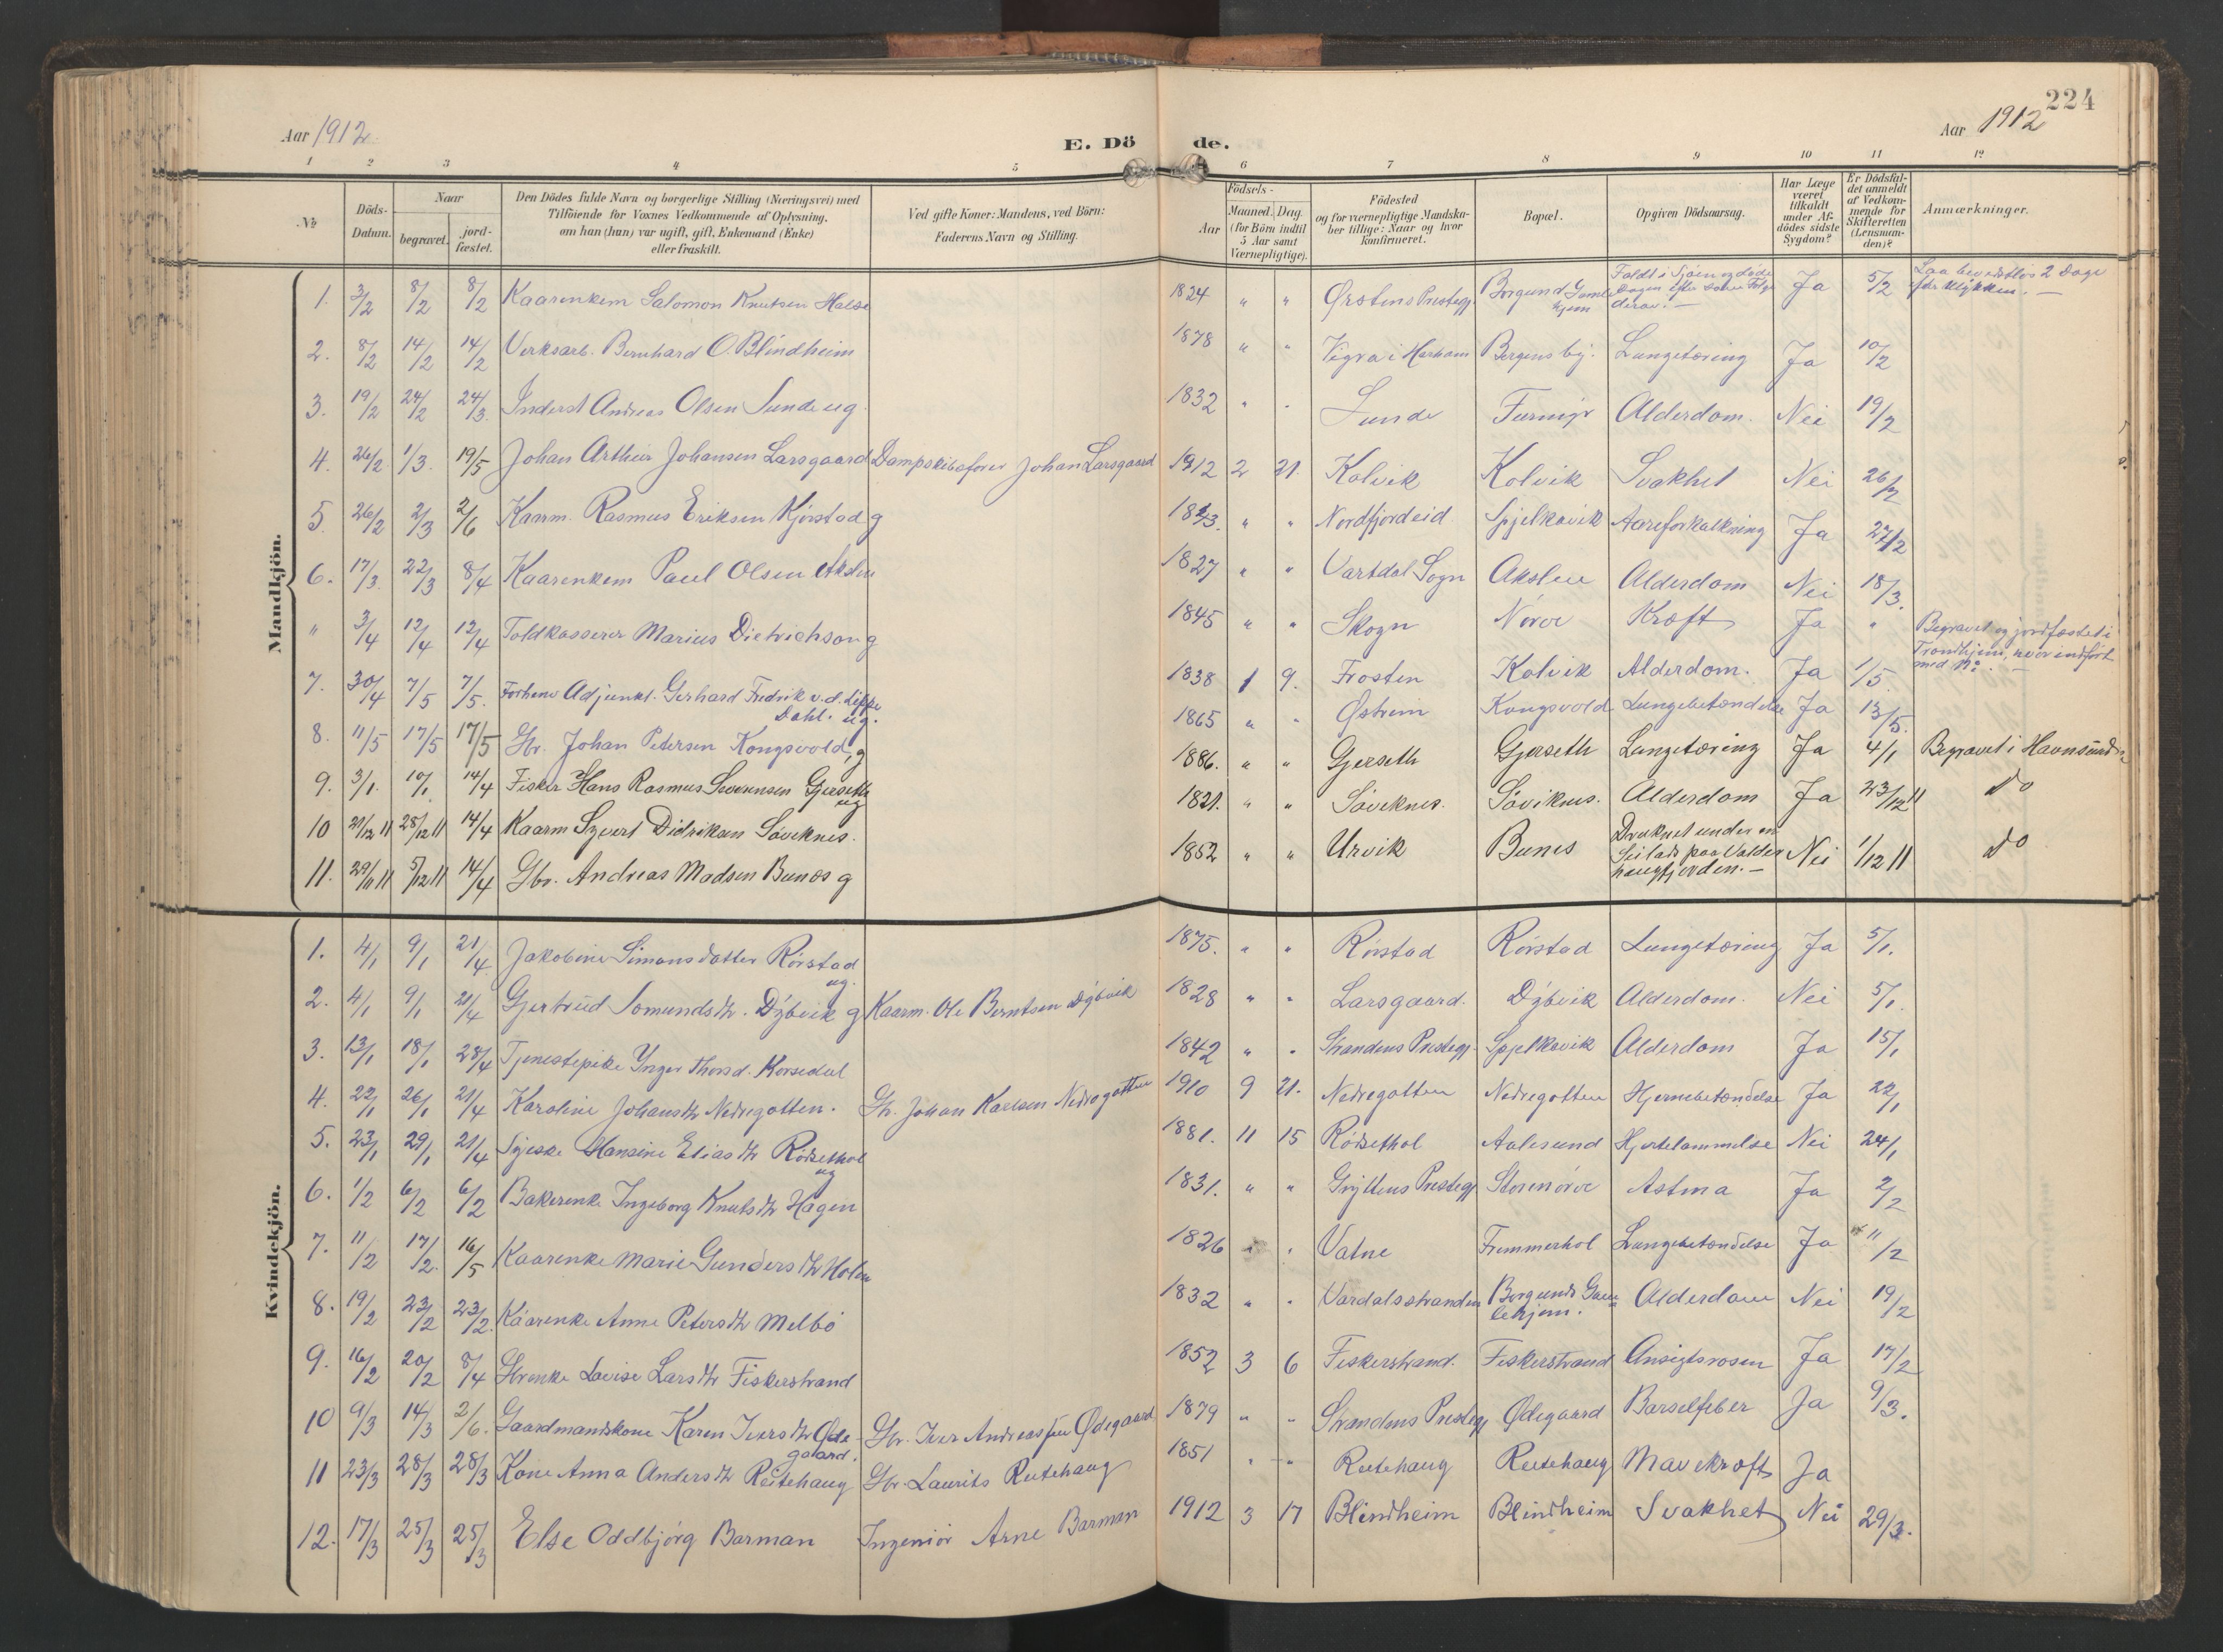 224
Aar 1912 E. Dö de. Aar 1912
1 2 3 4 5 6 7 8 9 10 11 12
№ Döds-Datum. Naar begravet. jord-fæstet. Den Dödes fulde Navn og borgerlige Stilling (Næringsvei) med Tilföiende for Voxnes Vedkommende af Oplysning, om han (hun) var ugift, gift, Enkemand (Enke) eller fraskilt. Ved gifte Koner: Mandens, ved Börn: Faderens Navn og Stilling. Födsels- Aar Maaned. Dag. (for Börn indtil 5 Aar samt Værnepligtige). Födested og for værnepligtige Mandska-ber tillige: Naar og hvor konfirmeret. Bopæl. Opgiven Dödsaarsag. Har Læge været tilkaldt under Af-dödes sidste Sygdom? Er Dödsfal-det anmeldt af Vedkom-mende for Skifteretten (Lensman-den)? Anmærkninger.
Mandkjön.
1. 3/2 8/2 8/2 Kaarenkem Salomon Knutsen Halse 1824 " " Ørstens Prestegj. Borgund Gamlehjem Faldt i Sjöen og döde Dagen efter som Følge derav. — Ja 5/2 Laa bevidstlös 2 Dage før Ulykken. —
2. 8/2 14/2 14/2 Verksarb. Bernhard O. Blindheim 1878 " " Vigra i Harham Bergens by. Lungetæring Ja 10/2
3. 19/2 24/2 24/3. Inderst Andreas Olsen Sunde ug. 1832 " " Sunde Furmyr Alderdom. Nei 19/2
4. 26/2 1/3. 19/5 Johan Arthur Johansen Larsgaard Dampskibsfører Johan Larsgaard 1912 2 21. Kolvik Kolvik Svakhet Nei 26/2
5. 26/2 2/3 2/6 Kaarm. Rasmus Eriksen Kjørstad g 1823. " " Nordfjordeid Spjelkavik Aareforkalkning Ja 27/2
6. 17/3. 22/3 8/4 Kaarenkem Paul Olsen Akslen 1827 " " Vartdal Sogn Akslen Alderdom Nei 18/3.
" 3/4 12/4 12/4 Toldkasserer Marius Dietrichson g 1845 " " Skogn Nørve Kræft Ja " Begravet og jordfæstet i Trondhjem, hvor indført med No. —
7. 30/4 7/5 7/5. Forhenv Adjunkt. Gerhard Fredrik v.d. Lippe Dahl. ug. 1838 1 9. Frosten Kolvik Alderdom. Ja 1/5
8. 11/5 17/5 17/5 Gbr. Johan Petersen Kongsvold, g 1865 " " Østrem Kongsvold Lungebetændelse Ja 13/5.
9. 3/1. 10/1. 14/4 Fisker Hans Rasmus Severinsen Gjerseth ug 1886. " " Gjerseth Gjerseth Lungetæring Ja 4/1 Begravet i Havnsund
10 21/12 11 28/12 11 14/4 Kaarm Syvert Didriksen Søveknes. 1821. " " Søveknes. Søviknes. Alderdom Ja 23/12 11 do
11. 29/11 11 5/12 11 14/4 Gbr. Andreas Madsen Bunes g 1852 " " Urvik Bunes Druknet under en Seilads paa Valder haugfjorden. — Nei 1/12 11 do
Kvindekjön.
1. 4/1 9/1 21/4. Jakobine Simonsdatter Rörstad ug. 1875. " " Rörstad Rörstad Lungetæring Ja 5/1.
2. 4/1 9/1 21/4 Gjertrud Somundsdtr. Dybvik g Kaarm. Ole Berntsen Dybvik 1828 " " Larsgaard. Dybvik Alderdom. Nei 5/1.
3. 13/1 18/1 28/4 Tjenestepike Ynger Thorsd. Korsedal 1842 " " Strandens Prestegj. Spjelkavik Alderdom Ja 15/1
4. 22/1 26/1 21/4 Karoline Johansdtr Nedregotten. Gbr. Johan Karlsen Nedregotten 1910 9 21. Nedregotten Nedregotten Hjernebetændelse Ja 22/1
5. 23/1 29/1 21/4 Syerske Hansine Eliasdtr Rödsethol ug 1881. 11 15 Rödsethol Aalesund Hjertelammelse Nei 24/1
6. 1/2 6/2 6/2 Bakerenke Ingeborg Knutsdtr Hagen 1831. " " Gryttens Prestegj Storenörve Astma Ja 2/2
7. 11/2 17/2. 16/5 Kaarenke Marie Gundersdtr Holen 1826 " " Vatne Fremmerhol Lungebetændelse Ja 11/2
8. 19/2 23/2 23/2. Kaarenke Anne Petersdtr Melbö 1832 " " Vardalsstranden Borgunds Gamlehjem. Alderdom Nei 19/2
9. 16/2 20/2 8/4 Gbrenke Lovise Larsdtr Fiskerstrand 1852 3 6 Fiskerstrand. Fiskerstrand Ansigtsrosen Ja 17/2
10 9/3 14/3 2/6. Gaardmandskone Karen Iversdtr Ødegaard. Gbr. Iver Andreassen Ødegaard 1879 " " Strandens Prestegj Ødegaard Barselfeber Ja 9/3.
11 23/3 28/3 28/3 Kone Anna Andersdtr Reitehaug Gbr. Laurits Reitehaug 1851 " " Reitehaug Reitehaug Mavekræft Ja
12. 17/3 25/3 25/3 Else Oddbjörg Barman Ingeniør Arne Barman 1912 3 17 Blindheim Blindheim Svakhet Nei 29/3.